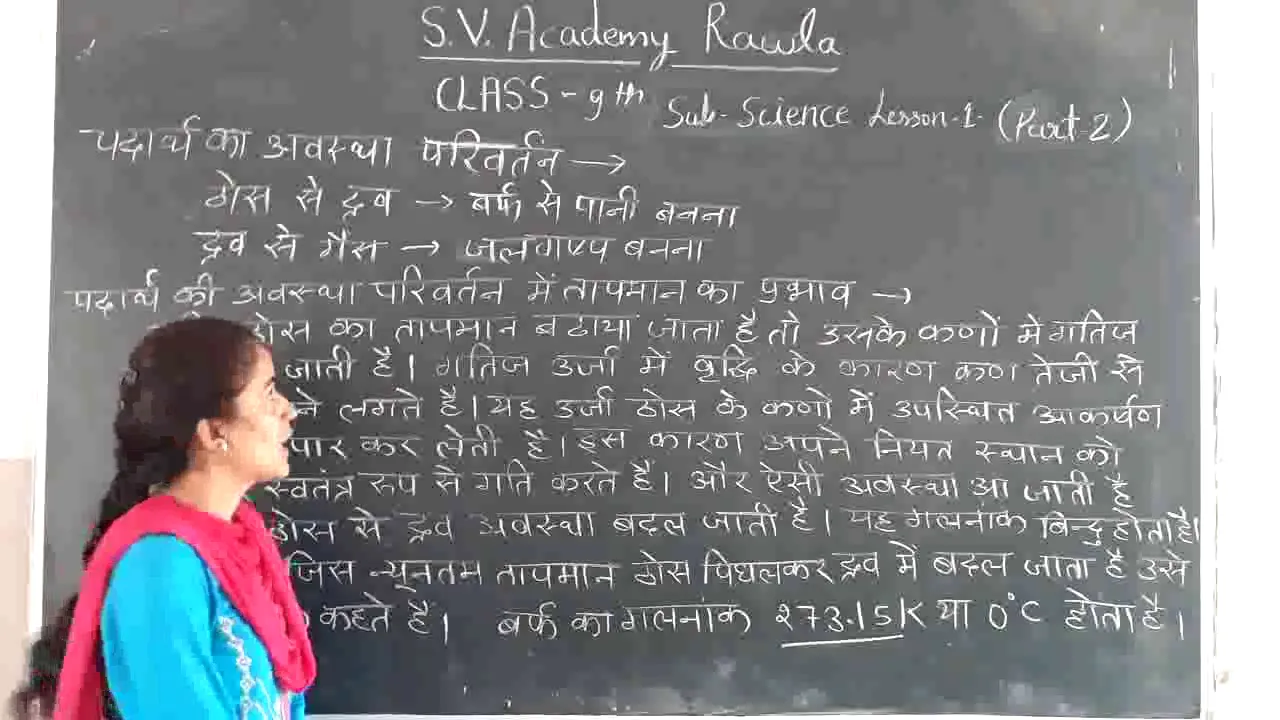 S.V. Academy Rawla
CLASS - 9th Sub- Science Lesson-1- (Part-2)
पदार्थ का अवस्था परिवर्तन →
ठोस से द्रव → बर्फ से पानी बनना
द्रव से गैस → जलवाष्प बनना
पदार्थ की अवस्था परिवर्तन में तापमान का प्रभाव →
ठोस का तापमान बढाया जाता है तो उसके कणों में गतिज
जाती है। गतिज उर्जा में वृद्धि के कारण कण तेजी से
ने लगते है। यह उर्जा ठोस के कणो में उपस्थित आकर्षण
पार कर लेती है। इस कारण अपने नियत स्थान को
स्वतंत्र रूप से गति करते है। और ऐसी अवस्था आ जाती है
ठोस से द्रव अवस्था बदल जाती है। यह गलनांक बिन्दु होता है।
जिस न्यूनतम तापमान ठोस पिघलकर द्रव में बदल जाता है उसे
कहते है। बर्फ का गलनांक 273.15K या 0°C होता है।